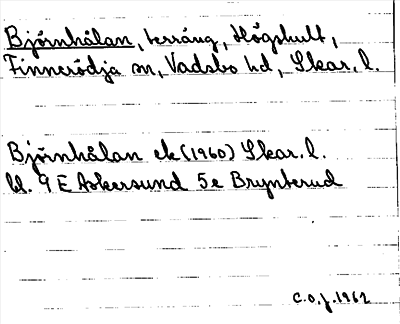 Björnhålan, terräng, Högshult,
Finnerödja sn, Vadsbo hd, Skar. l.
Björnhålan ek (1960) Skar. l.
bl. 9 E Askersund 5e Brynterud
C.O.J. 1962